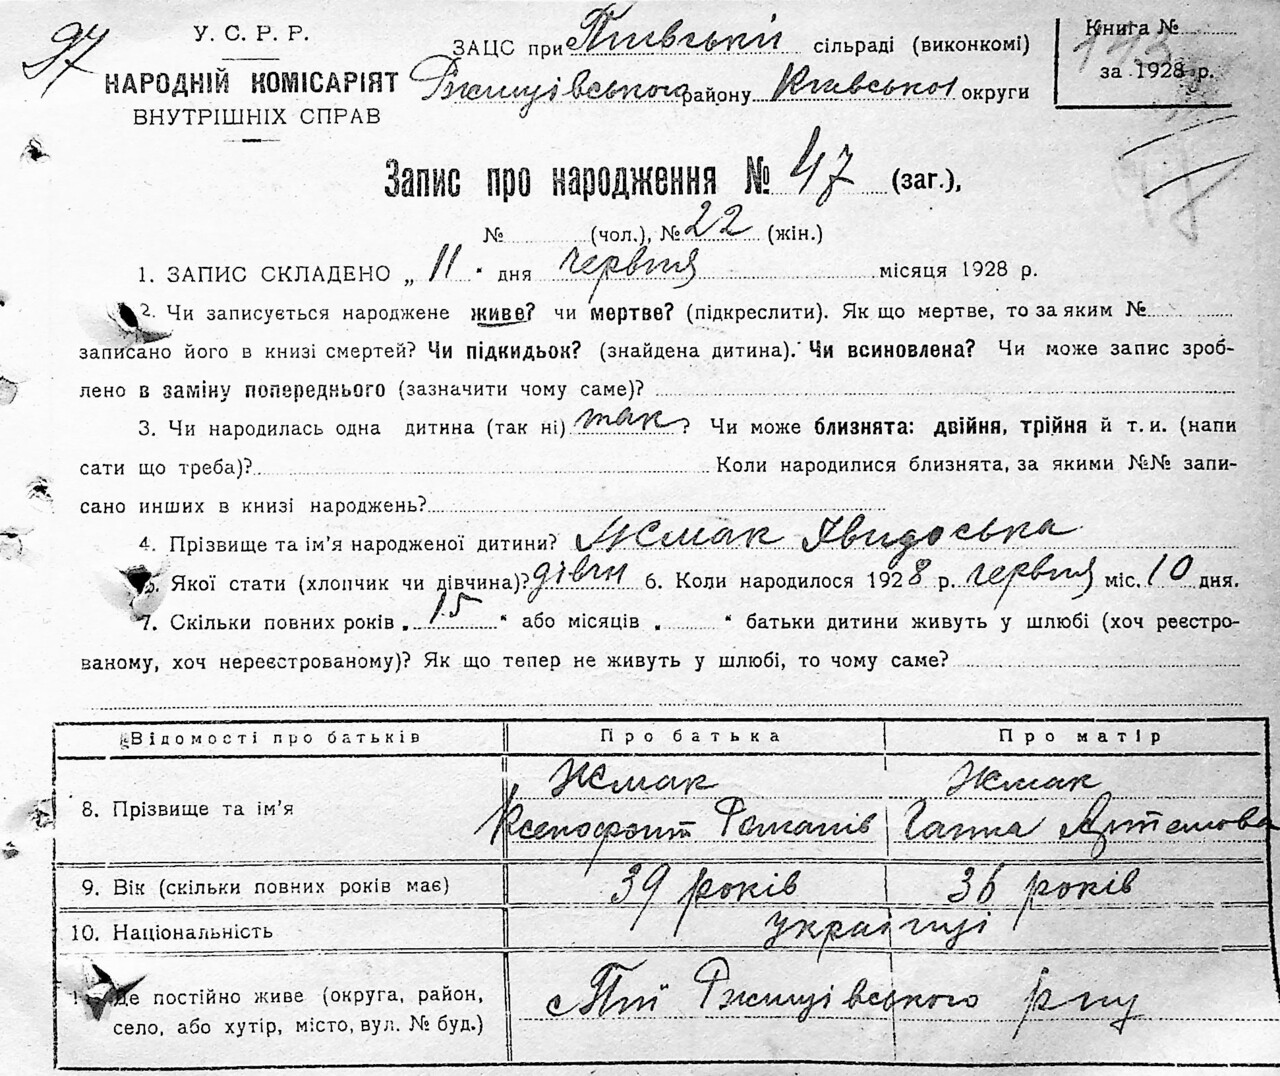 97
У. С. Р. Р.
НАРОДНІЙ КОМІСАРІЯТ
ВНУТРІШНІХ СПРАВ
ЗАЦС при Пиївській сільраді (виконкомі)
Ржищівського району Київської округи
Книга №
за 1928 р.
Запис про народження № 47 (заг.),
№ (чол.), № 22 (жін.)
1. ЗАПИС СКЛАДЕНО „ 11 " дня червня місяця 1928 р.
2. Чи записується народжене живе? чи мертве? (підкреслити). Як що мертве, то за яким №
записано його в книзі смертей? Чи підкидьок? (знайдена дитина). Чи всиновлена? Чи може запис зроб-
лено в заміну попереднього (зазначити чому саме)?
3. Чи народилась одна дитина (так ні) так ? Чи може близнята: двійня, трійня й т. и. (напи
сати що треба)? Коли народилися близнята, за якими №№ запи-
сано инших в книзі народжень?
4. Прізвище та ім'я народженої дитини? Жмак Явидоська
5. Якої стати (хлопчик чи дівчина)? дівчи 6. Коли народилося 1928 р. червня міс. 10 дня.
7. Скільки повних років „ 15 " або місяців „ " батьки дитини живуть у шлюбі (хоч реєстро-
ваному, хоч нереєстрованому)? Як що тепер не живуть у шлюбі, то чому саме?
Відомості про батьків Про батька Про матір
Жмак Жмак
8. Прізвище та ім'я
Ксенофонт Романів Ганна Артемова
9. Вік (скільки повних років має) 39 років 36 років
10. Національність українці
Де постійно живе (округа, район, с Пиї Ржищівського р-ну
село, або хутір, місто, вул. № буд.)